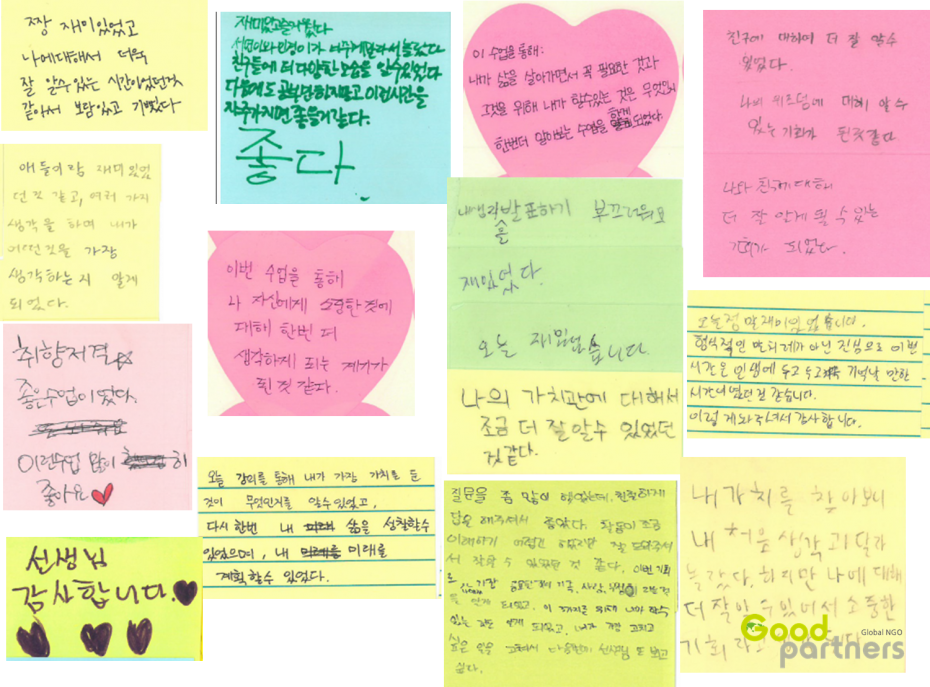 짱 재미있었고
나에대해서 더욱
잘 알수있는 시간이었던것
같아서 보람있고 기뻤다
재미있고놀라웠다
친구들에 더다양한 모습을 알수있었다
다음에도 이런시간을
자주가지면 좋을거같다.
좋다
이 수업을 통해:
내가 삶을 살아가면서 꼭 필요한 것과
그것을 위해 내가 할수있는 것은 무엇인지
한번더 알아보는 수업을 하게 되었다
친구에 대하여 더 잘 알수
있었다.
나의 위즈덤에 대해 알 수
있는 기회가 된것 같다
나와 친구에 대해
더 잘 알게 될 수 있는
기회가 되었다.
애들이랑 재미있었
던것 같고, 여러 가지
생각을 하며 내가
어떤것을 가장
생각하는지 알게
되었다.
이번 수업을 통해
나 자신에게 소중한것에
대해 한번 더
생각하게 되는 계기가
된 것 같다.
내생각을 발표하기 부끄러워요
재밌었다.
오늘 재밌었습니다.
나의 가치관에 대해서
조금 더 잘 알수 있었던
것같다.
오늘정말재미있었습니다.
형식적인 멘토링제가 아닌 진심으로 이번
시간은 인생에 두고두고 기억날 만한
시간이었던 것 같습니다.
이렇게 와주셔서 감사합니다.
취향저격☆
좋은수업이었다.
이런수업 많이 히
좋아요♥
오늘 강의를 통해 내가 가장 가치를 둔
것이 무엇인지를 알수 있었고,
다시 한번 내 삶을 성찰할수
있었으며, 내 미래를
계획할수 있었다.
선생님
감사합니다.♥
질문을 좀 많이 했었는데, 친절하게
답을 해주셔서 좋았다. 활동이 조금
이해하기 어렵긴 했지만 잘 도와주셔
서 잘할 수 있었던 것 같다. 이번 기회
로 가장
을 알게 되었고, 이 3가지를 위해 내가 할수
있는 것도 알게 되었고, 내가
싶은 다음번에 선생님 또 보고
싶다.
내 가치를 찾아보니
내 처음 생각과 달라
놀랐다. 하지만 나에 대해
더 잘 알 수 있어서 소중한
기회라고
Good
Global NGO
partners